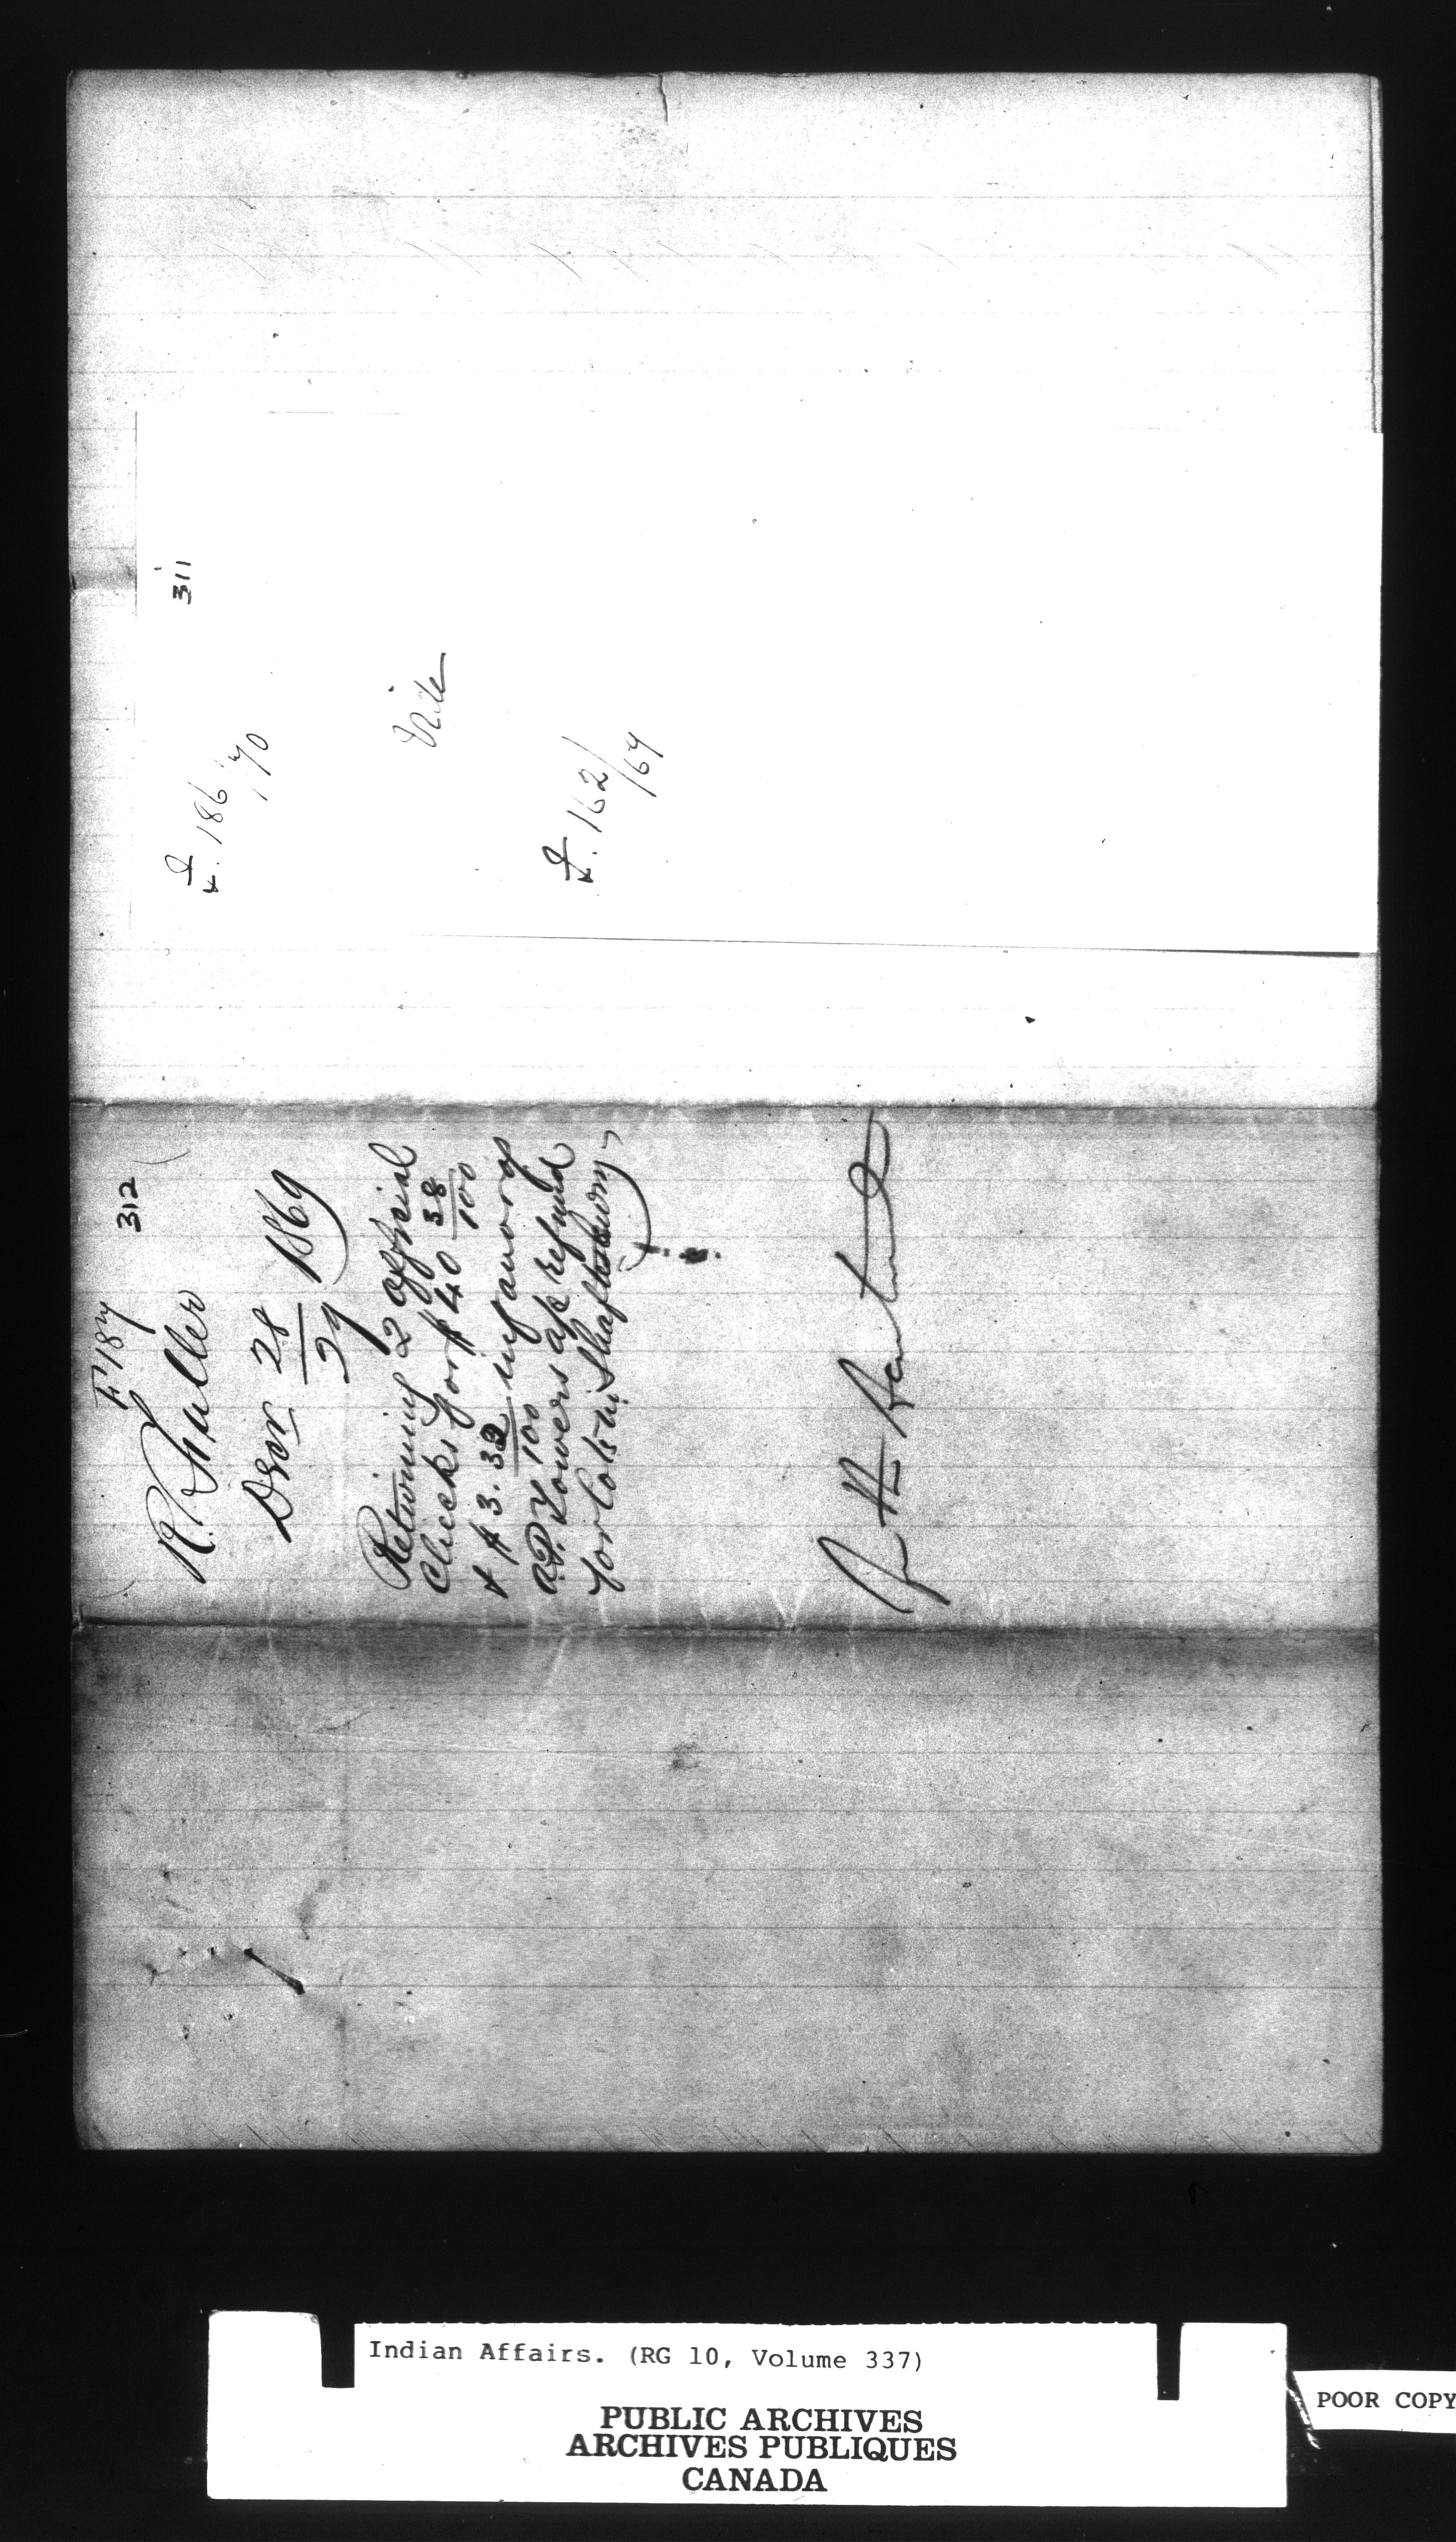 311
F. 186/70
Vide
F. 162/69
312
F 187
R. Fuller
Decr 28/29 1869
Returning 2 official
checks for $40 38/100
& $3.32/100 in favor of
A.P. Towers as refund
for Lots in Shaftesbury
Indian Affairs. (RG 10, Volume 337)
PUBLIC ARCHIVES
ARCHIVES PUBLIQUES
CANADA
POOR COPY